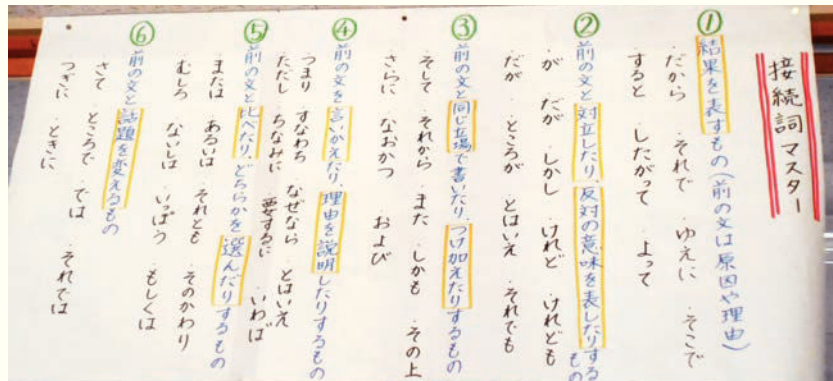 接続詞マスター
① 結果を表すもの(前の文は原因や理由)
・だから ・それで ・ゆえに ・そこで
・すると ・したがって ・よって
② 前の文と対立したり、反対の意味を表したりするもの
・が ・だが ・しかし ・けれど ・けれども
・だが ・ところが ・とはいえ ・それでも
③ 前の文と同じ立場で書いたり、つけ加えたりするもの
・そして ・それから ・また ・しかも ・その上
・さらに ・なおかつ ・および
④ 前の文を言いかえたり、理由を説明したりするもの
・つまり ・すなわち ・なぜなら ・とはいえ
・ただし ・ちなみに ・要するに ・いわば
⑤ 前の文と比べたり、どちらかを選んだりするもの
・または ・あるいは ・それとも ・そのかわり
・むしろ ・ないしは ・いっぽう ・もしくは
⑥ 前の文と話題を変えるもの
・さて ・ところで ・では ・それでは
・つぎに ・ときに